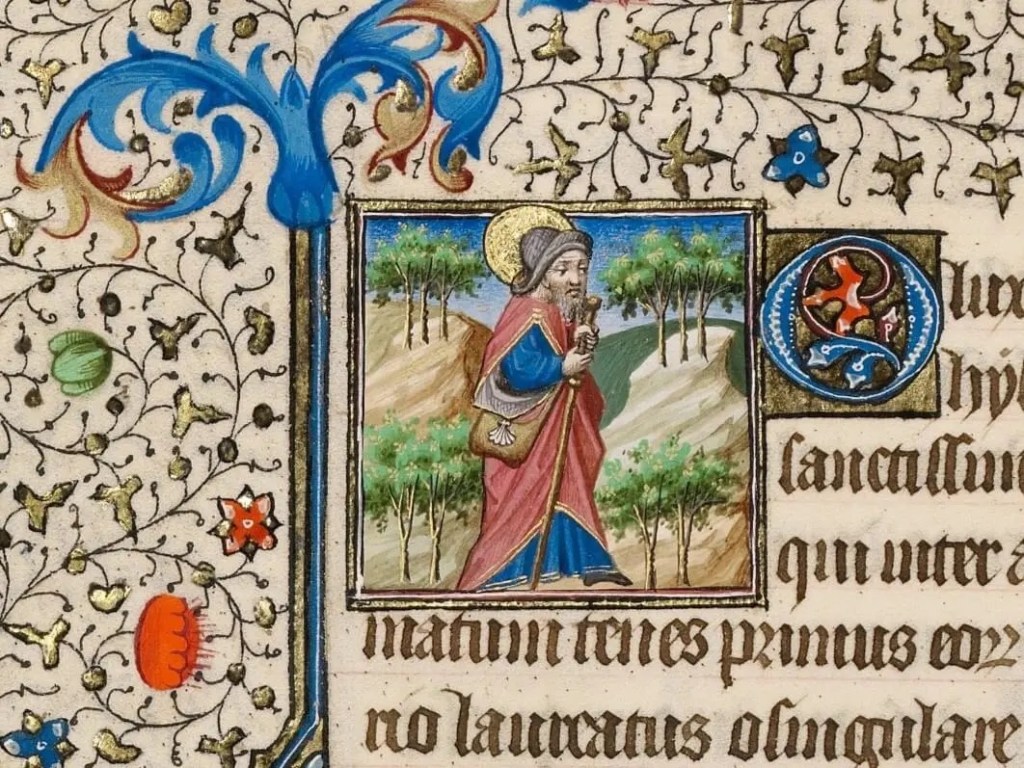 O lux
hys
sanctissim
qui inter a
matum tenes primus eor
rio laureatus o singulare